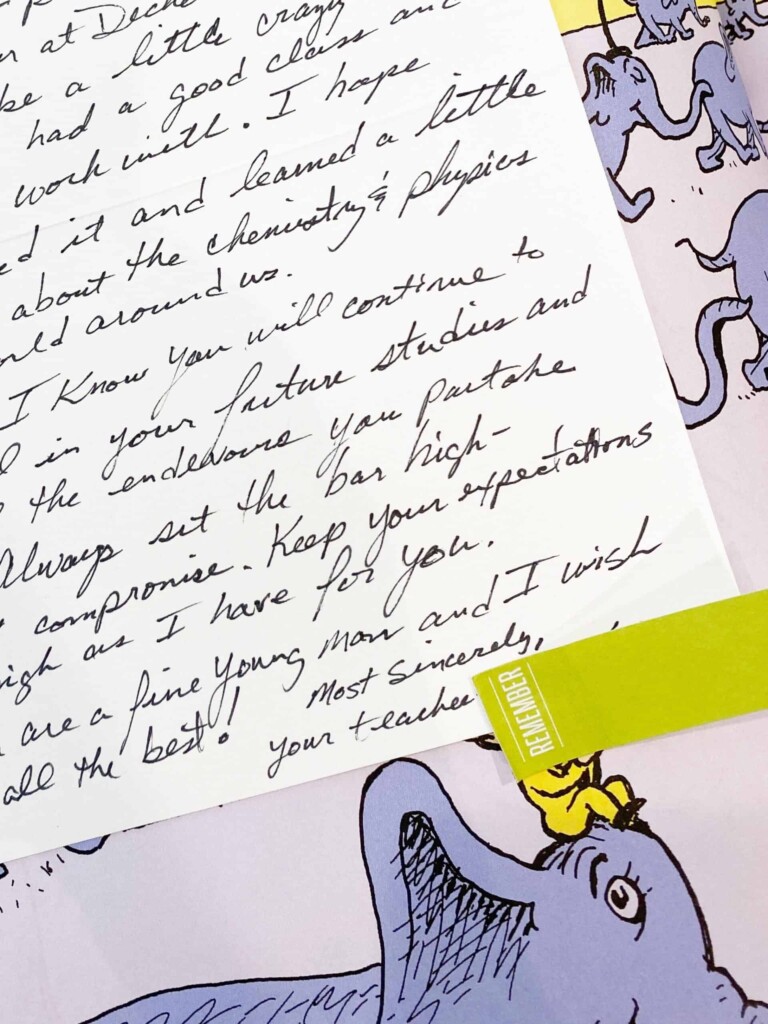 at Deche
be a little crazy
had a good class and
work with. I hope
ed it and learned a little
about the chemistry & physics
orld around us.
I Know you will continue to
in your future studies and
the endeavors you partake
Always set the bar high-
compromise. Keep your expectations
igh as I have for you.
are a fine young man and I wish
all the best! Most Sincerely,
your teacher
REMEMBER